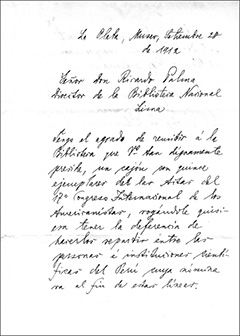 La Plata, Museo, Setiembre 28
de 1912
Señor don Ricardo Palma
Director de la Biblioteca Nacional
Lima
Tengo el agrado de remitir á la
Biblioteca que Vd. tan dignamente
preside, un cajón con quince
ejemplares de las Actas del
17º Congreso Internacional de los
Americanistas, rogándole quisie-
ra tener la deferencia de
hacerlos repartir entre las
personas é instituciones cientí-
ficas del Perú cuya nómina
va al fin de estas líneas.